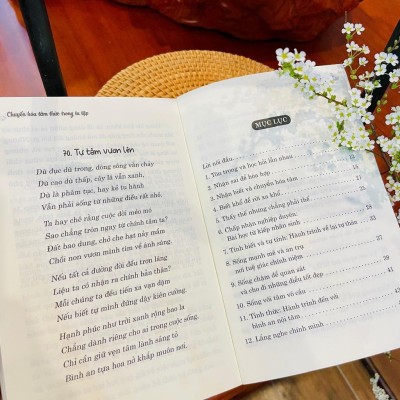 Chuyển hóa tâm thức trong tu tập
70. Tự tâm vươn lên
Dù đục dù trong, dòng sông vẫn chảy
Dù cao dù thấp, cây lá vẫn xanh,
Dù là phàm tục, hay kẻ tu hành
Vẫn phải sống từ những điều rất nhỏ.
Ta hay chê rằng cuộc đời méo mó
Sao chẳng tròn ngay từ chính tâm ta?
Đất bao dung, chở che hạt nảy mầm
Chồi non vươn mình tìm về ánh sáng.
Nếu tất cả đường đời đều trơn láng
Liệu ta có nhận ra chính bản thân?
Mỗi chúng ta đều tiến xa vạn dặm
Nếu biết tự mình đứng dậy kiên cường.
Hạnh phúc như trời xanh rộng bao la
Chẳng dành riêng cho ai trong cuộc sống.
Chỉ cần giữ vẹn tâm lành sáng tỏ
Bình an tựa hoa nở khắp muôn nơi.
MỤC LỤC
Lời nói đầu
1. Tôn trọng và học hỏi lẫn nhau
2. Nhận sai để hòa hợp
3. Nhận biết và chuyển hóa tâm
4. Biết khổ để vơi xa khổ
5. Thấy thế nhưng chẳng phải thế
6. Chấp nhận nghiệp duyên:
Bài học từ kiếp nhân sinh 33
7. Tinh biết và tự tỉnh: Hành trình về lại tự thân 37
8. Sống mạnh mẽ và an trụ
nơi tuệ giác chính niệm
9. Sống chăm để quan sát
và cho đi những điều tốt đẹp
10. Sống với tâm vô cầu
11. Tỉnh thức: Hành trình đến với
bình an nội tâm
12. Lắng nghe chính mình